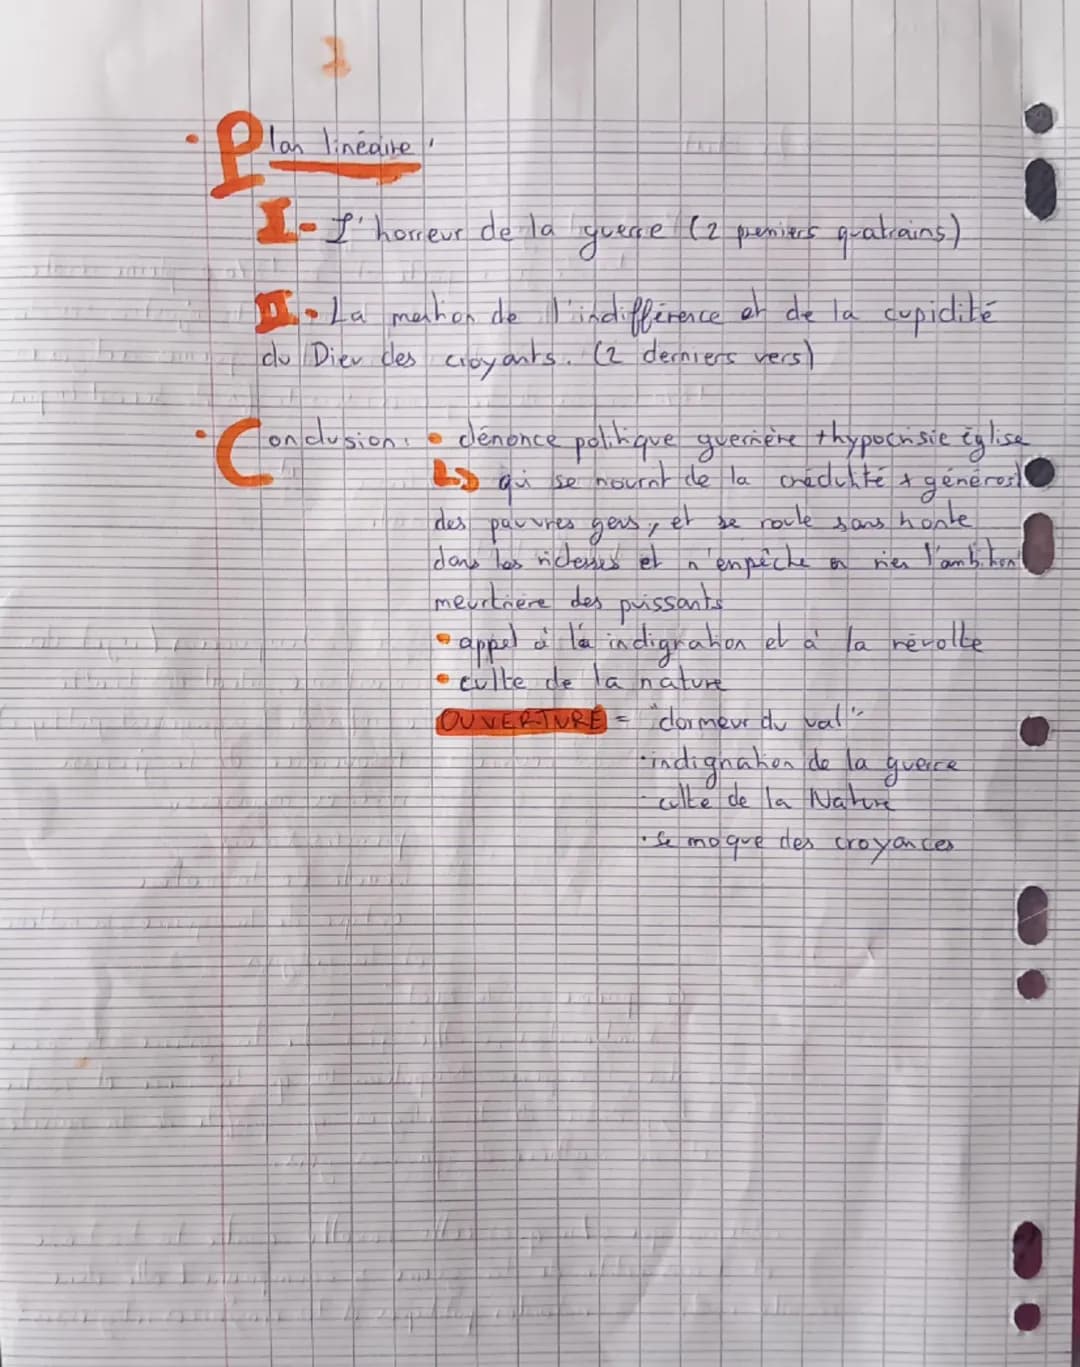 2
• Plan linéaire :
I - L'horreur de la guerre (2 premiers quatrains)
II - La mention de l'indifférence et de la cupidité
du Dieu des croyants. (2 derniers vers)
• Conclusion : • dénonce politique guerrière + hypocrisie Église
↳ qui se nourrit de la crédulité +
des pauvres gens, et se roule sans honte
dans les richesses et n'empêche en rien l'ambition
meurtrière des puissants
• appel à la indignation et à la révolte
• culte de la nature
OUVERTURE = "dormeur du val"
• indignation de la guerre
- culte de la Nature
• se moque des croyances